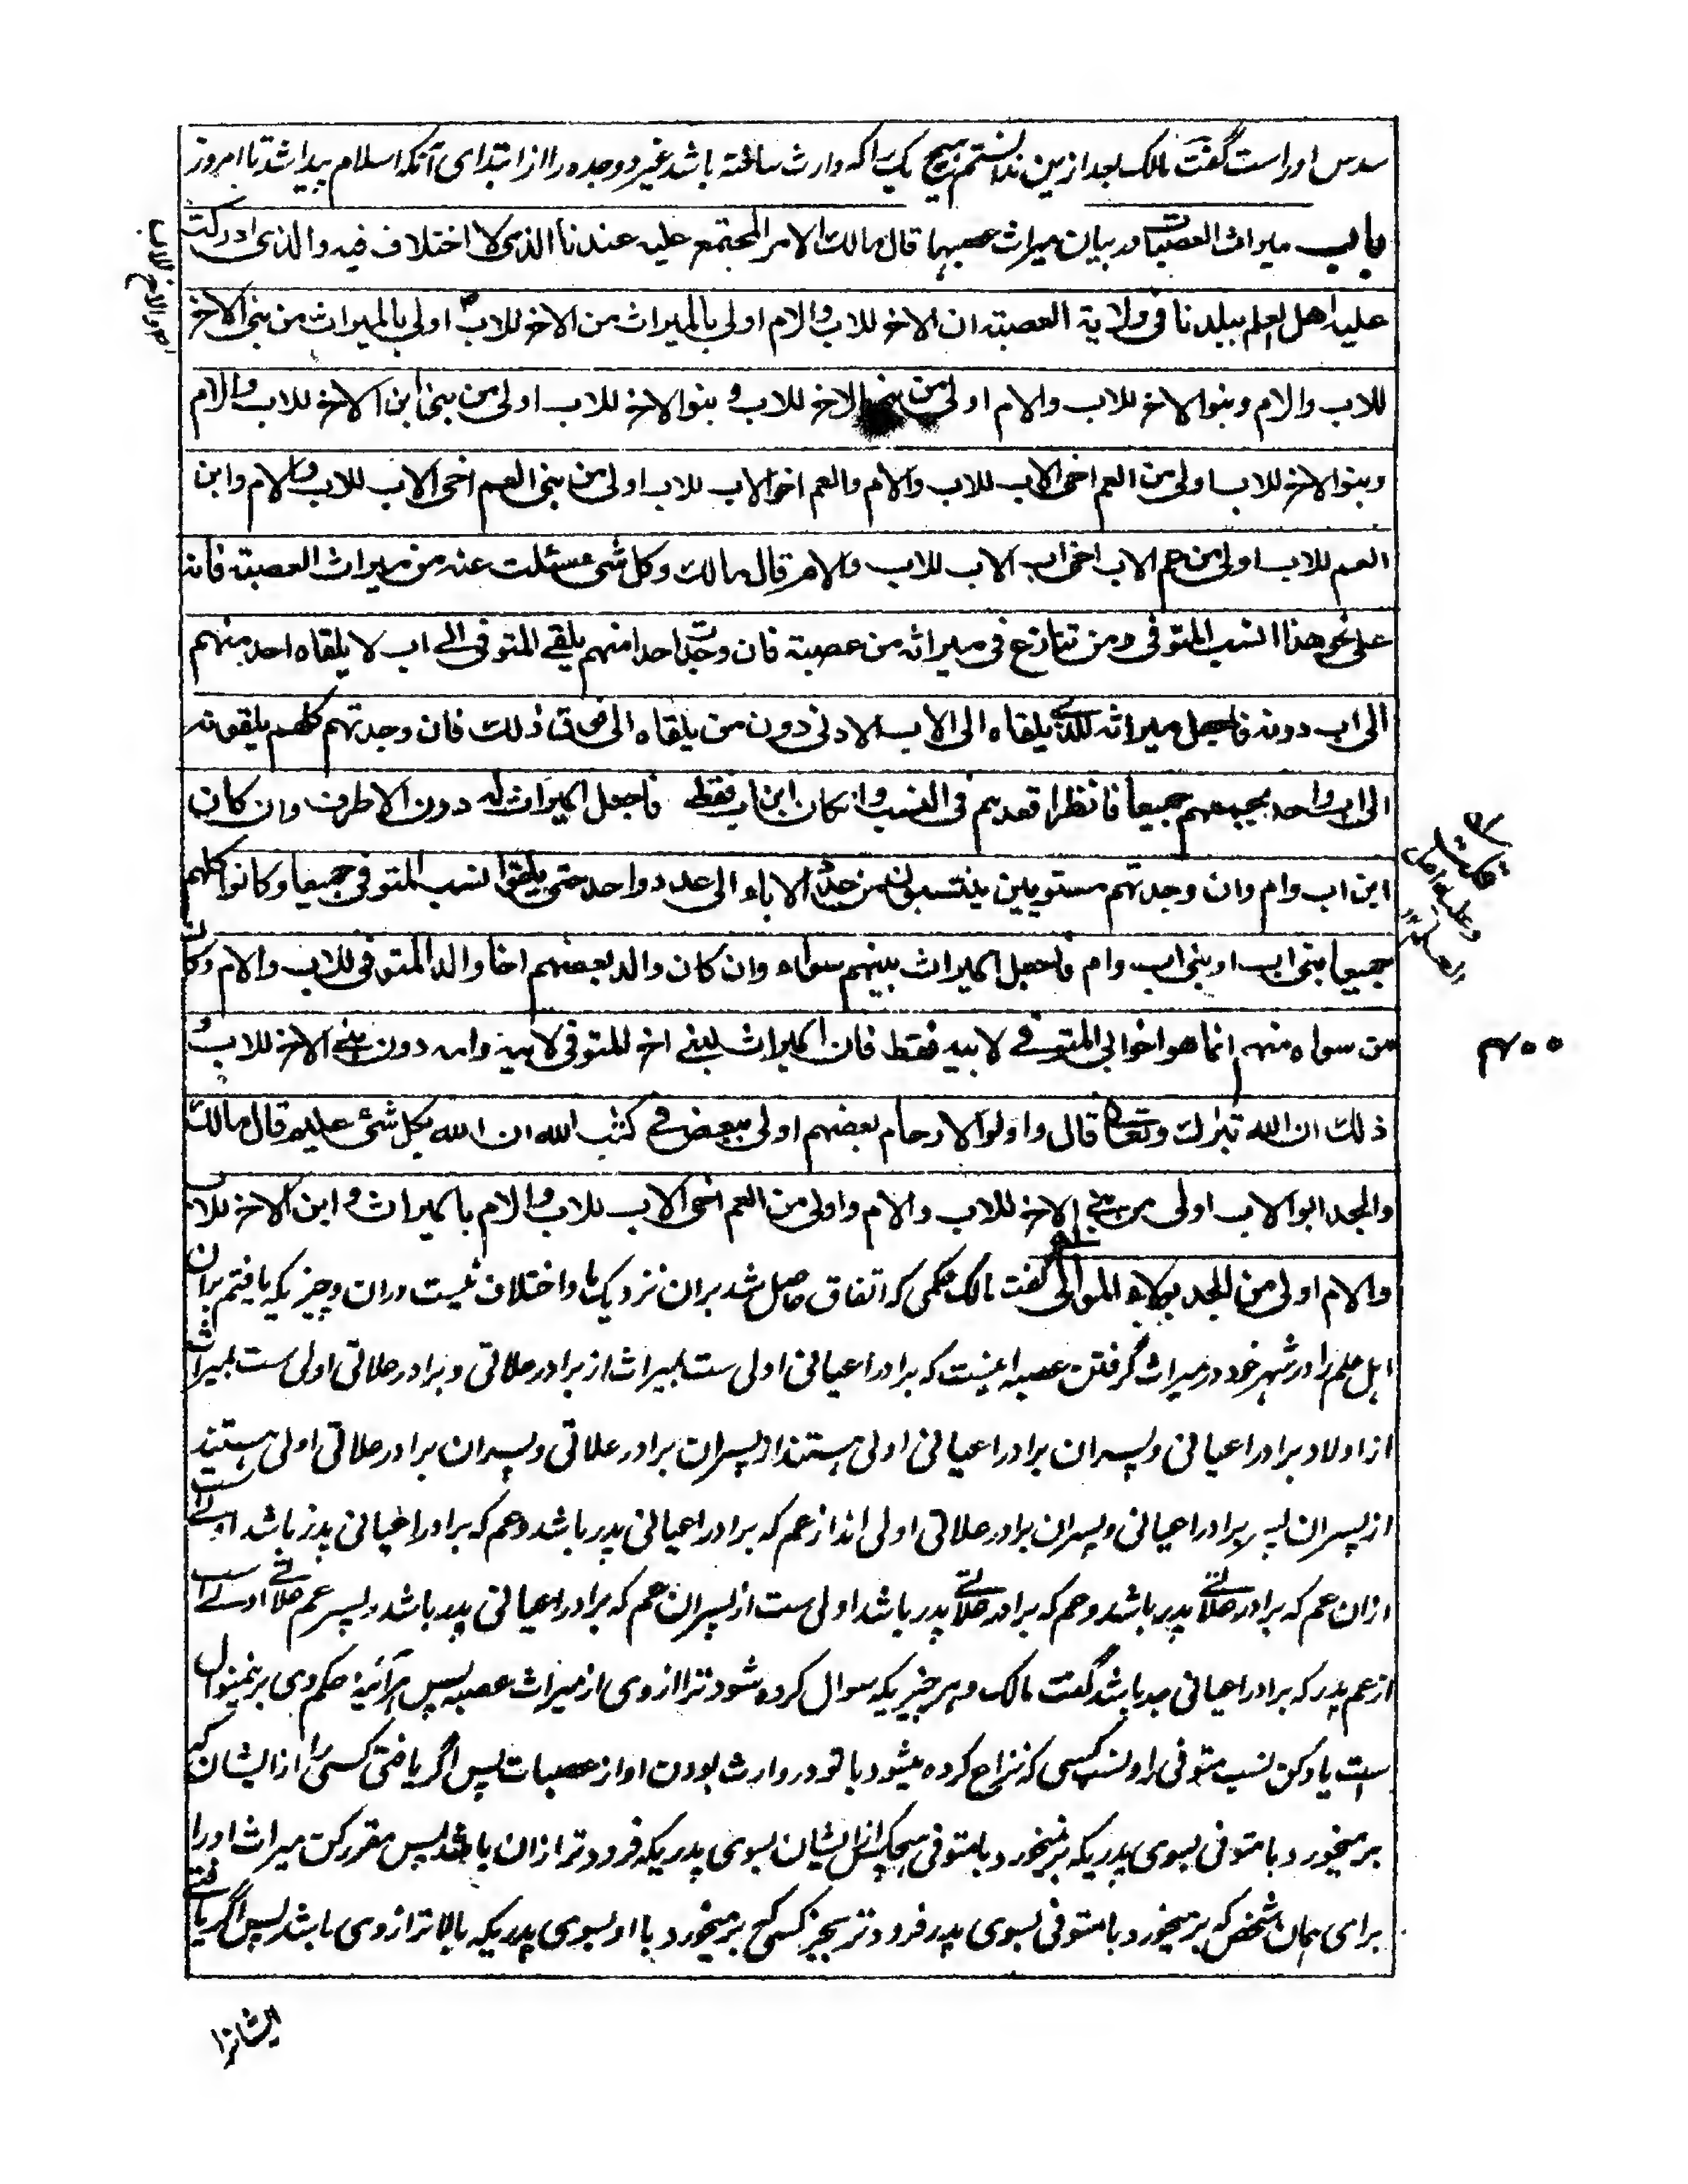 سدس اوراست گفت مالک بعد ازین ندانستم هیچ یک را که وارث ساخته باشد غیر دو جده را از ابتدای آنکه اسلام پیدا شد تا امروز
باب میراث العصبات در بیان میراث عصبها قال مالك الامر المجتمع عليه عندنا الذى لا اختلاف فيه والذى ادركت
عليه اهل العلم ببلدنا فى ولاية العصبة ان الاخ للاب والام اولى بالميراث من الاخ للاب اولى بالميراث من بنى الاخ
والاخ للاب
للاب والام وبنوا الاخ للاب والام اولى من بنى الاخ للاب و بنوا الاخ للاب اولى من بنى ابن الاخ للاب والام
وبنوا الاخ للاب اولى من العم اخى الاب للاب والام والعم اخو الاب للاب اولى من بنى العم اخى الاب للاب والام وابن
العم للاب اولى من عم الاب اخى اب الاب للاب والام قال مالك وكل شئ سئلت عنه من ميراث العصبة فانه
على نحو هذا انسب المتوفى ومن تنازع فى ميراثه من عصبة فان وجدت احدا منهم يلقى المتوفى الى اب لا يلقاه احد منهم
الى اب دونه فاجعل ميراثه للذى يلقاه الى الاب الادنى دون من يلقاه الى فوق ذلك فان وجدتهم كلهم يلقونه
الى اب واحد يجمعهم جميعا فانظر اقعدهم فى النسب وان كان ابن اب فقط فاجعل الميراث له دون الاطرف وان كان
ابن اب وام وان وجدتهم مستويين ينتسبون من عدد الاباء الى عدد واحد حتى يلقوا نسب المتوفى جميعا وكانوا كلهم
قلت وعليه اهل العلم
جميعا بنى اب او بنى اب وام فاجعل الميراث بينهم سواء وان كان والد بعضهم اخا والد المتوفى للاب والام وكان
من سواه منهم انما هو اخو ابى المتوفى لابيه فقط فان الميراث لبنى اخ المتوفى لابيه وامه دون بنى الاخ للاب و
ذلك ان الله تبرك وتعالى قال واولوا الارحام بعضهم اولى ببعض فى كتب الله ان الله بكل شئ عليم قال مالك
والجد ابو الاب اولى من بنى الاخ للاب والام واولى من العم اخى الاب للاب والام بالميراث و ابن الاخ للاب
والام اولى من الجد بولاء الموالى گفت مالک حکمی که اتفاق حاصل شد بران نزدیک ما و اختلاف نیست دران و چیزیکه یافتم بران
اهل علم را در شهر خود در میراث گرفتن عصبه اینست که برادر اعیانی اولی ست بمیراث از برادر علاتی و برادر علاتی اولی ست بمیراث
از اولاد برادر اعیانی و پسران برادر اعیانی اولی هستند از پسران برادر علاتی و پسران برادر علاتی اولی هستند
از پسران پسر برادر اعیانی و پسران برادر علاتی اولی اند از عم که برادر اعیانی پدر باشد و عم که برادر اعیانی پدر باشد اولی ست
ازان عم که برادر علاتی پدر باشد و عم که برادر علاتی پدر باشد اولی ست از پسران عم که برادر اعیانی پدر باشد و پسر عم علاتی اولی است
از عم پدر که برادر اعیانی جد باشد گفت مالک و هر چیزیکه سوال کرده شود ترا از وی از میراث عصبه پس هر آئینه حکم وی برینمنوال
ست یاد کن نسب متوفی را و نسب کسی که نزاع کرده میشود با تو در وارث بودن او از عصبات پس اگر یافتی کسی را از ایشان که
بر میخورد با متوفی بسوی پدریکه بر نمیخورد با متوفی هیچکس از ایشان بسوی پدریکه فرود تر ازان باشد پس مقرر کن میراث او را
برای همان شخص که بر میخورد با متوفی بسوی پدر فرود تر بجز کسی که بر میخورد با او بسوی پدریکه بالا تر از وی باشد پس اگر یافتی
ایشانرا